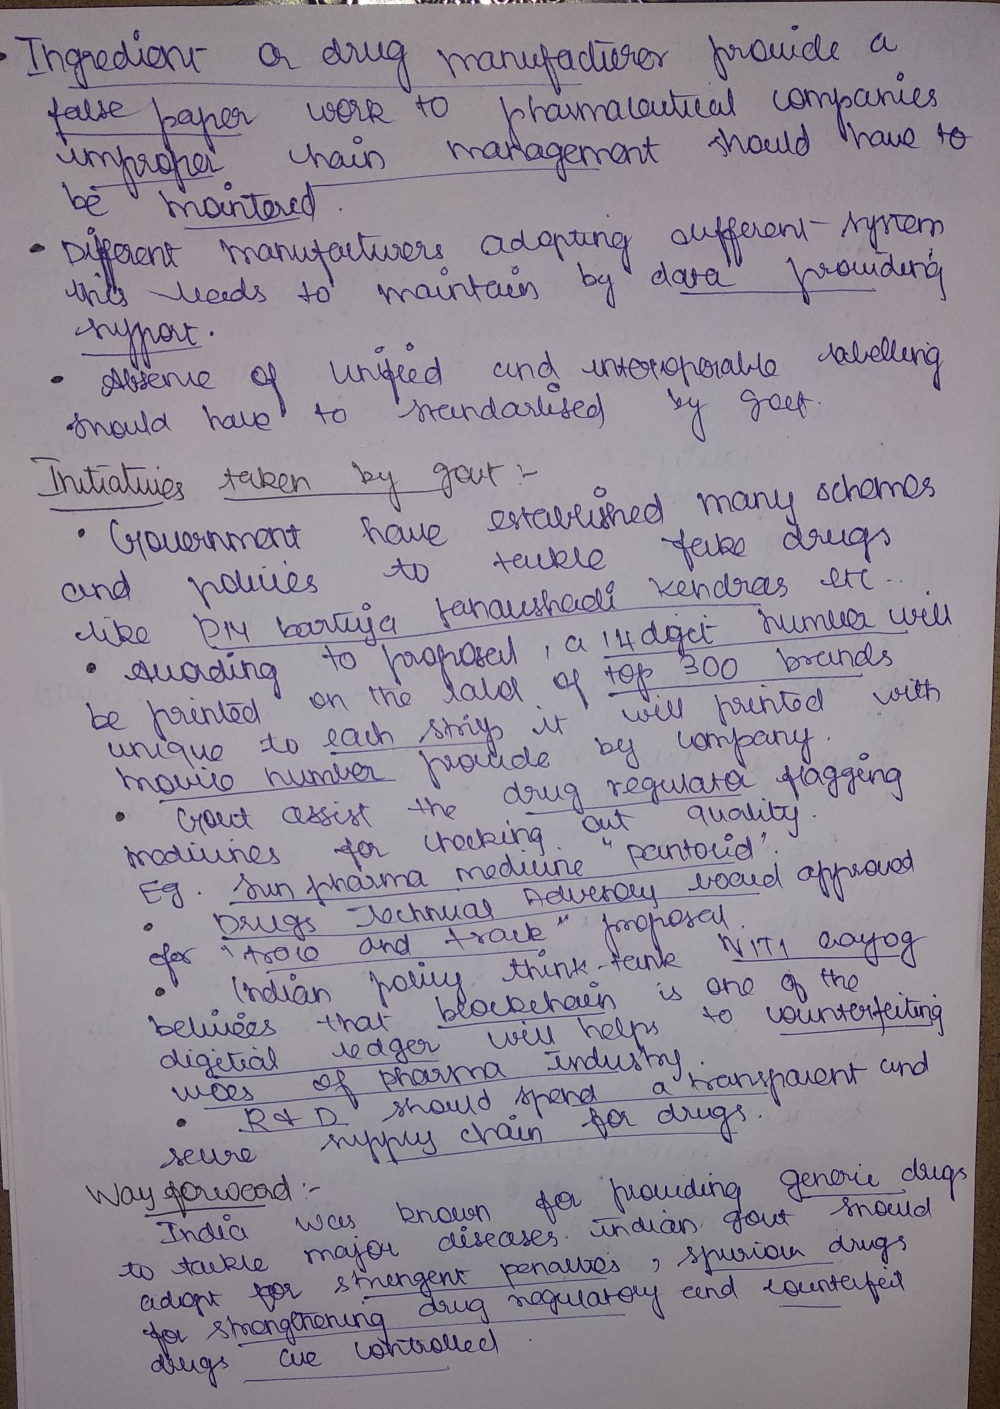 • Ingredient or drug manufacturer provide a
false paper work to pharmaceutical companies
improper chain management should have to
be maintered.
• Different manufacturers adopting different system
this leads to maintain by data providing
support.
• Absense of unified and interoperable labelling
should have to standarlised by govt.
Initiatives taken by govt :-
• Government have established many schemes
and policies to tackle fake drugs
like PM bartiya Janaushadi Kendras etc..
• According to proposal, a 14 dget number will
be printed on the label of top 300 brands
unique to each strip it will printed with
movile number provide by company.
• Govt assist the drug regulator flagging
medicines for checking out quality.
Eg. Sun pharma medicine "pantocid".
• Drugs Technical Adversory board approved
for "trace and track" proposal.
• Indian policy think-tank NITI aayog
believes that blockchain is one of the
digetial ledger will helps to counterfeiting
woes of pharma industry.
• R & D should spend a transparent and
secure supply chain for drugs.
Way forword :-
India was known for providing generic drugs
to tackle major diseases. Indian govt should
adopt for strengent penalties, spurious drugs
for strengthening drug regulatory and counterfeit
drugs are controlled.